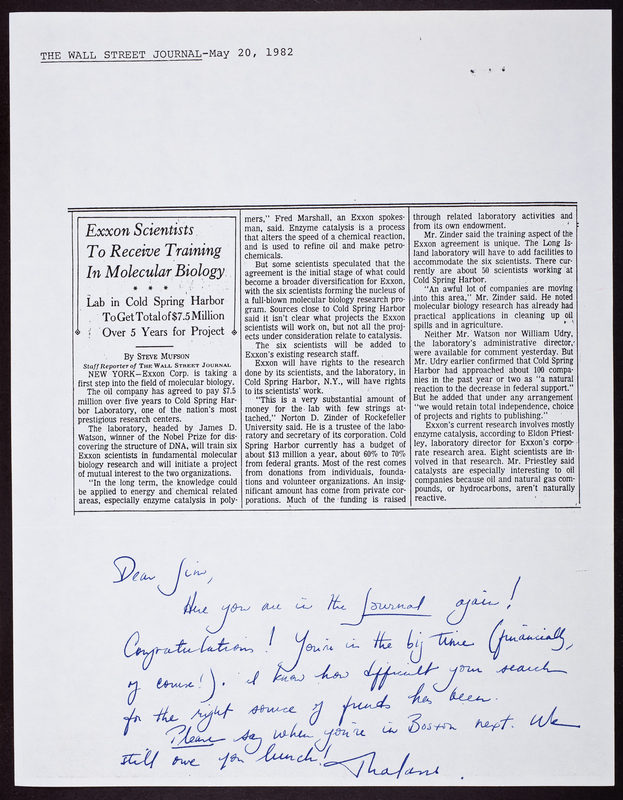 THE WALL STREET JOURNAL-May 20, 1982
Exxon Scientists
To Receive Training
In Molecular Biology
* * *
Lab in Cold Spring Harbor
To Get Total of $7.5 Million
Over 5 Years for Project
By STEVE MUFSON
Staff Reporter of THE WALL STREET JOURNAL
NEW YORK—Exxon Corp. is taking a
first step into the field of molecular biology.
The oil company has agreed to pay $7.5
million over five years to Cold Spring Har-
bor Laboratory, one of the nation's most
prestigious research centers.
The laboratory, headed by James D.
Watson, winner of the Nobel Prize for dis-
covering the structure of DNA, will train six
Exxon scientists in fundamental molecular
biology research and will initiate a project
of mutual interest to the two organizations.
"In the long term, the knowledge could
be applied to energy and chemical related
areas, especially enzyme catalysis in poly-
mers," Fred Marshall, an Exxon spokes-
man, said. Enzyme catalysis is a process
that alters the speed of a chemical reaction,
and is used to refine oil and make petro-
chemicals.
But some scientists speculated that the
agreement is the initial stage of what could
become a broader diversification for Exxon,
with the six scientists forming the nucleus of
a full-blown molecular biology research pro-
gram. Sources close to Cold Spring Harbor
said it isn't clear what projects the Exxon
scientists will work on, but not all the proj-
ects under consideration relate to catalysis.
The six scientists will be added to
Exxon's existing research staff.
Exxon will have rights to the research
done by its scientists, and the laboratory, in
Cold Spring Harbor, N.Y., will have rights
to its scientists' work.
"This is a very substantial amount of
money for the lab with few strings at-
tached," Norton D. Zinder of Rockefeller
University said. He is a trustee of the labo-
ratory and secretary of its corporation. Cold
Spring Harbor currently has a budget of
about $13 million a year, about 60% to 70%
from federal grants. Most of the rest comes
from donations from individuals, founda-
tions and volunteer organizations. An insig-
nificant amount has come from private cor-
porations. Much of the funding is raised
through related laboratory activities and
from its own endowment.
Mr. Zinder said the training aspect of the
Exxon agreement is unique. The Long Is-
land laboratory will have to add facilities to
accommodate the six scientists. There cur-
rently are about 50 scientists working at
Cold Spring Harbor.
"An awful lot of companies are moving
into this area," Mr. Zinder said. He noted
molecular biology research has already had
practical applications in cleaning up oil
spills and in agriculture.
Neither Mr. Watson nor William Udry,
the laboratory's administrative director,
were available for comment yesterday. But
Mr. Udry earlier confirmed that Cold Spring
Harbor had approached about 100 compa-
nies in the past year or two as "a natural
reaction to the decrease in federal support."
But he added that under any arrangement
"we would retain total independence, choice
of projects and rights to publishing."
Exxon's current research involves mostly
enzyme catalysis, according to Eldon Priest-
ley, laboratory director for Exxon's corpo-
rate research area. Eight scientists are in-
volved in that research. Mr. Priestley said
catalysts are especially interesting to oil
companies because oil and natural gas com-
pounds, or hydrocarbons, aren't naturally
reactive.
Dear Jim,
Here you are in the Journal again!
Congratulations! You're in the big time (financially,
of course!). I know how difficult your search
for the right source of funds has been.
Please say when you're in Boston next. We
still owe you lunch!